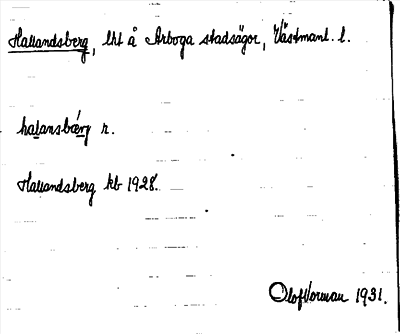 Hallandsberg, lht å Arboga stadsägor, Västmanl. l.
halansbærj n.
Hallandsberg kb 1928.
Olof Norman 1931.